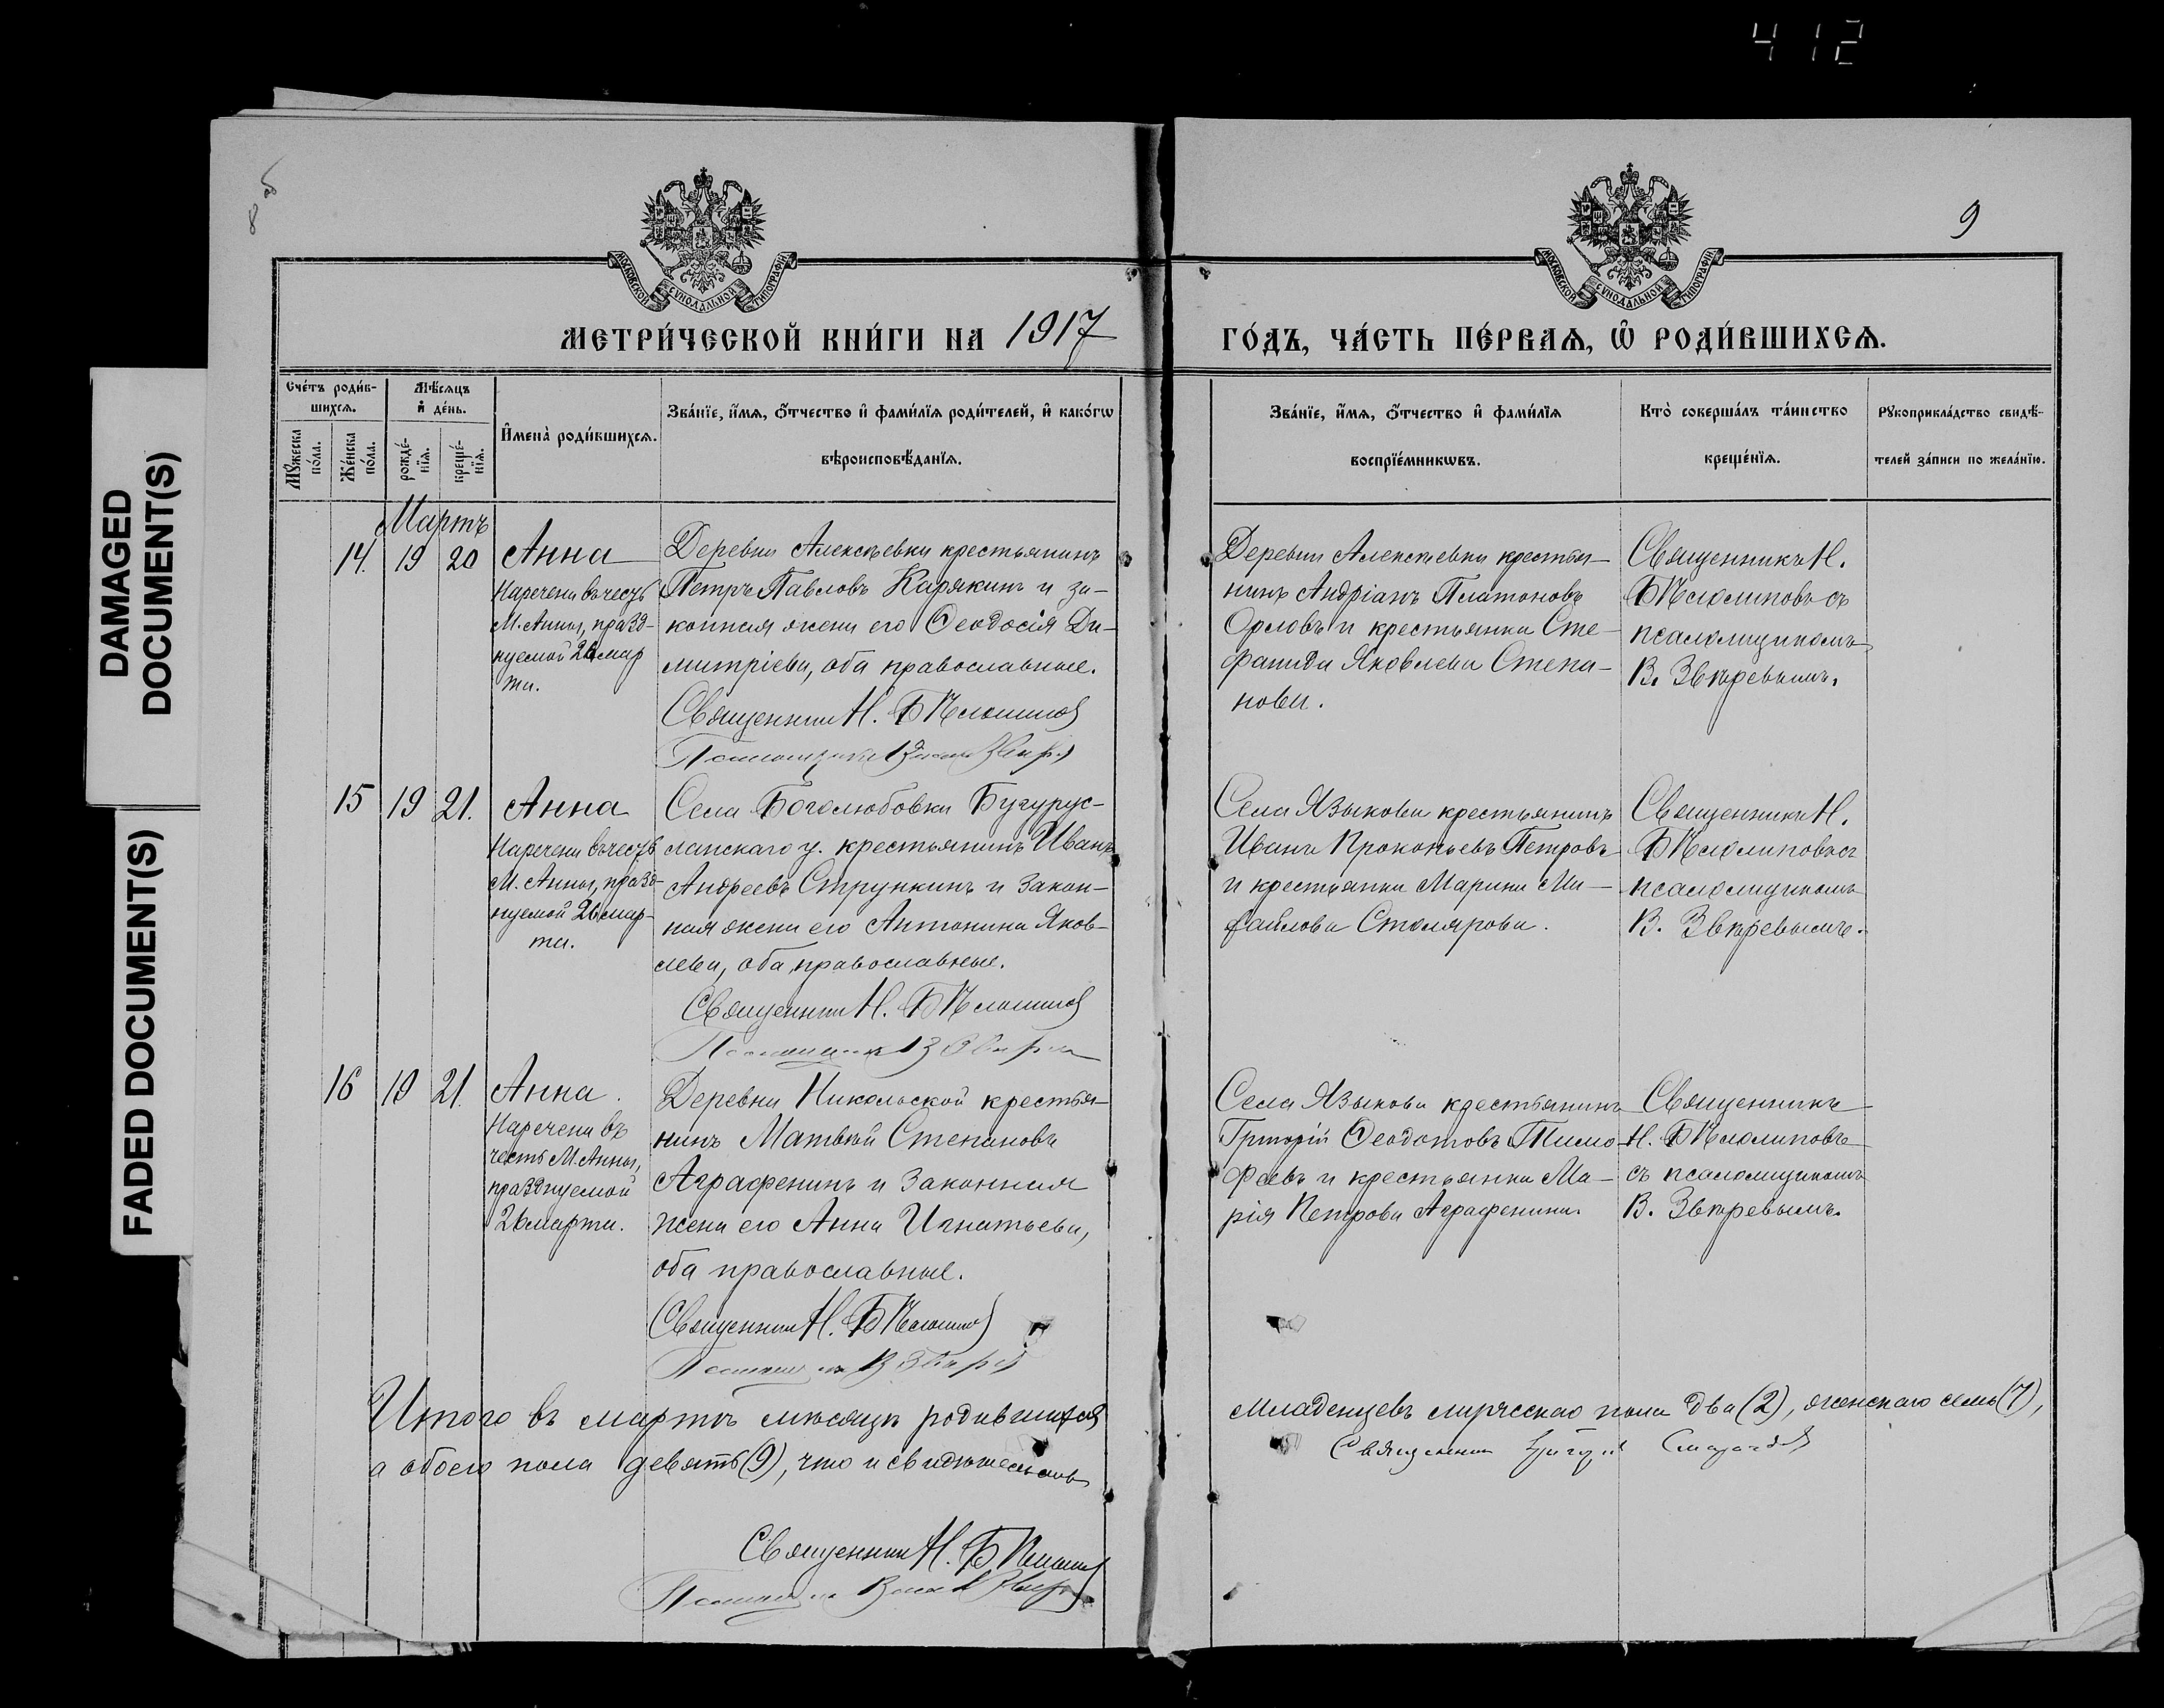 412
DAMAGED
DOCUMENT(S)
FADED DOCUMENT(S)
8 об
9
МОСКОВСКОЙ СѴНОДАЛЬНОЙ ТИПОГРАФІИ
МОСКОВСКОЙ СѴНОДАЛЬНОЙ ТИПОГРАФІИ
МЕТРИ́ЧЕСКОЙ КНИ́ГИ НА 1917
ГО́ДЪ, ЧА́СТЬ ПЕ́РВАѦ, Ѽ РОДИ́ВШИХСѦ.
Сче́тъ роди́в-
шихсѧ.
Мꙋ́жеска
по́ла.
Же́нска
по́ла.
Мѣ́сѧцъ
и҆ де́нь.
рожде́-
нїѧ.
креще́-
нїѧ.
И҆мена̀ роди́вшихсѧ.
Зва́нїе, и҆́мѧ, ѻ҆́тчество и҆ фами́лїѧ роди́телей, и҆ како́гѡ
вѣроисповѣ́данїѧ.
Зва́нїе, и҆́мѧ, ѻ҆́тчество и҆ фами́лїѧ
воспрїе́мникѡвъ.
Кто̀ соверша́лъ та́инство
креще́нїѧ.
Рꙋкоприкла́дство свидѣ́-
телей за́писи по жела́нїю.
Мартъ
14. 19 20 Анна
Наречена въ честь
М. Анны, празд-
нуемой 26 мар
та.
Деревни Алексѣевки крестьянинъ
Петръ Павловъ Карякинъ и за-
конная жена его Ѳеодосія Ди-
митріева, оба православные.
Священникъ Н.
Деревни Алексѣевки крестья-
нинъ Андріанъ Платоновъ
Орловъ и крестьянка Сте-
фанида Яковлева Степа-
нова.
Священникъ Н.
псаломщикомъ
В. Звѣревымъ.
15 19 21. Анна
Наречена въ честь
М. Анны, празд-
нуемой 26 мар-
та.
Села Боголюбовки Бугурус-
ланскаго у. крестьянинъ Иванъ
Андреевъ Стрункинъ и закон-
ная жена его Антонина Яков-
лева, оба православные.
Священникъ Н.
Села Языкова крестьянинъ
Иванъ Прокопьевъ Петровъ
и крестьянка Марина Ми-
хайлова Столярова.
Священникъ Н.
псаломщикомъ
В. Звѣревымъ.
16 19 21. Анна.
Наречена въ
честь М. Анны,
празднуемой
26 марта.
Деревни Никольской крестья-
нинъ Матвѣй Степановъ
Аграфенинъ и законная
жена его Анна Игнатьева,
оба православные.
Священникъ Н.
Села Языкова крестьянинъ
Григорій Ѳеодотовъ Тимо-
феевъ и крестьянка Ма-
рія Петрова Аграфенина.
Священникъ
Н.
съ псаломщикомъ
В. Звѣревымъ.
Итого въ мартѣ мѣсяцѣ родившихся
младенцевъ мужескаго пола два (2), женскаго семь (7),
а обоего пола девять (9), что и свидѣтельствуемъ
Священникъ
Священникъ Н.